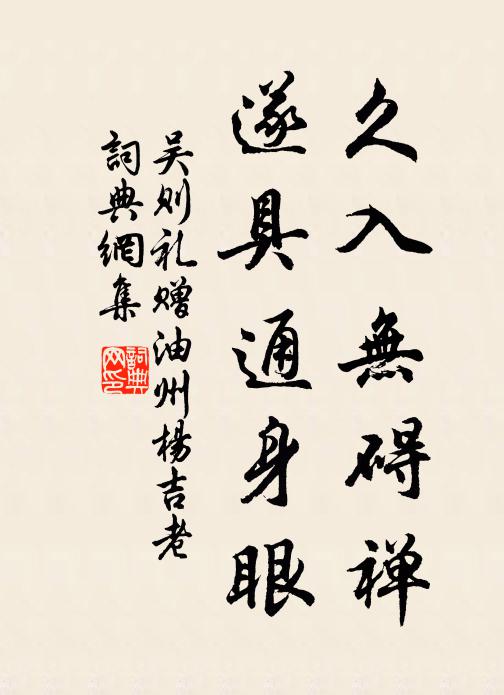 久入無碍禅
遂具通身眼
吴则礼赠油州楊吉老
詞典網集
詞典
网印